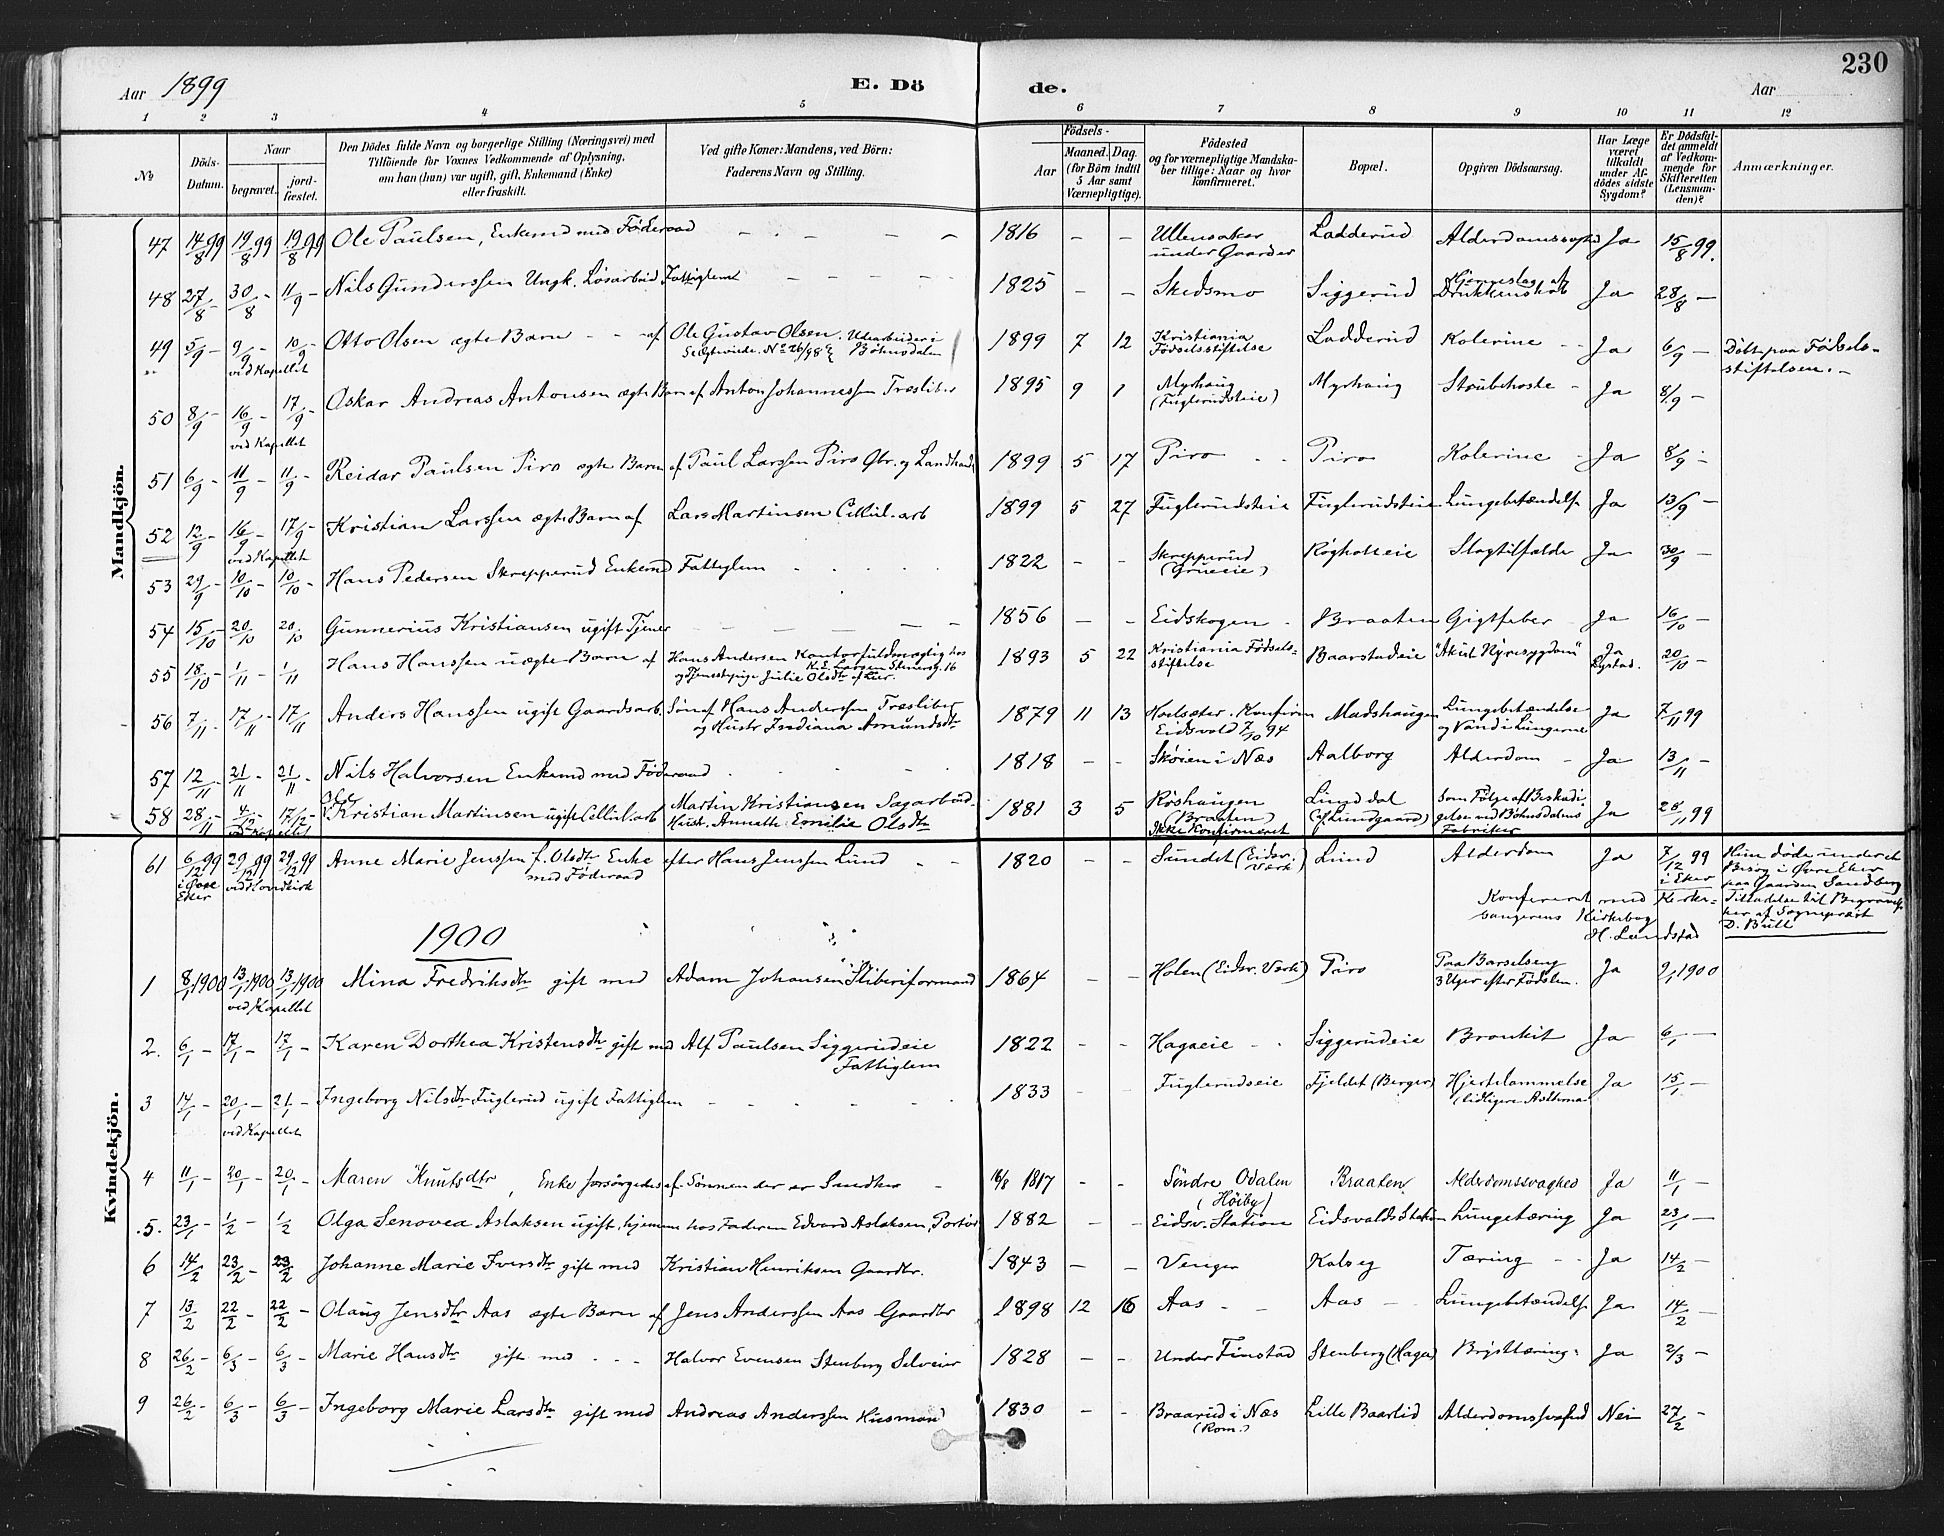 230
Aar 1899
E. Dö de.
Aar
1 2 3 4 5 6 7 8 9 10 11 12
No
Döds-Datum.
Naar
begravet.
jord-fæstet.
Den Dödes fulde Navn og borgerlige Stilling (Næringsvei) med
Tilföiende for Voxnes Vedkommende af Oplysning,
om han (hun) var ugift, gift, Enkemand (Enke)
eller fraskilt.
Ved gifte Koner: Mandens, ved Börn:
Faderens Navn og Stilling.
Födsels-
Aar
Maaned. Dag.
(for Börn indtil
5 Aar samt
Værnepligtige).
Födested
og for værnepligtige Mandska-
ber tillige: Naar og hvor
konfirmeret.
Bopæl.
Opgiven Dödsaarsag.
Har Læge
været
tilkaldt
under Af-
dödes sidste
Sygdom?
Er Dödsfal-
det anmeldt
af Vedkom-
mende for
Skifteretten
(Lensman-
den)?
Anmærkninger.
Mandkjön.
47 14/8 99 19/8 99 19/8 99 Ole Paulsen, Enkemd med Föderaad - - - - - 1816 - - Ullensaker Ladderud Alderdomssvaghed Ja 15/8 99.
under Gaarder
48 27/8 - 30/8 - 11/9 - Nils Gunderssen Ungk. Løsarbeid. Fattiglem - - - 1825 - - Skedsmo Siggerud Hjerneslag af Drukkenskab Ja 28/8 -
49 5/9 - 9/9 - 10/9 - Otto Olsen ægte Barn - - af Ole Gustav Olsen. Udearbeider i 1899 7 12 Kristiania Ladderud Kolerine - Ja 6/9 - Döbt paa Födsels-
ved Kapellet No 26/98 Bøhnsdalen Födselsstiftelse stiftelsen. -
50 8/9 - 16/9 - 17/9 - Oskar Andreas Antonsen ægte Barn af Anton Johannessen Træsliber 1895 9 1 Myrhaug Myrhaug Strubehoste - Ja 8/9 -
ved Kapellet (Fuglerudseie)
51 6/9 - 11/9 - 11/9 - Reidar Paulsen Piro ægte Barn af Paul Larssen Piro Gbr. og Landhand. 1899 5 17 Piro - - Piro Kolerine - Ja 8/9 -
52 12/9 - 16/9 - 17/9 - Kristian Larssen ægte Barn af Lars Martinsen Cellul. arb 1899 5 27 Fuglerudseie Fuglerudseie Lungebetændelse Ja 13/9 -
ved Kapellet
53 29/9 - 10/10 - 10/10 - Hans Pedersen Skrepperud Enkemd Fattiglem - - - 1822 - - Skrepperud Røgholteie Slagtilfælde Ja 30/9 -
(Grueeie)
54 15/10 - 20/10 20/10 Gunnerius Kristiansen ugift Tjener - - - - - 1856 - - Eidskogen - Braaten Gigtfeber - Ja 16/10 -
55 18/10 - 1/11 - 1/11 Hans Hanssen uægte Barn af Hans Andersen Kontorfuldmægtig hos 1893 5 22 Kristiania Födsels- Baarstadeie "Akut Nyresygdom" Ja 20/10 -
K. E. Larsen Stenersg. 16 stiftelse
og Tjenestepige Julie Olsdtr
56 7/11 - 17/11 - 17/11 Anders Hanssen ugift Gaardsarb. Søn af Hans Anderssen Træsliber 1879 11 13 Holsæter. Konfirm Madshaugen Lungebetændelse Ja 7/11 99
og Hustr Indiana Amundsdtr Eidsvold 7/10 94 og Vand i Lungerne
57 12/11 - 21/11 - 21/11 - Nils Halvorsen Enkemd med Föderaad - - - 1818 - - Skøien i Næs Aalborg Alderdom - Ja 13/11 -
58 28/11 - 4/12 - 17/12 - Kristian Martinsen ugift Cellul. arb Martin Kristiansen Sagarbeid. 1881 3 5 Røshaugen Lunddal Som Følge af Beskadi- Ja 28/11 99
ved Kapellet Hustr. Annette Emilie Olsdtr (Braaten) (Lundgaard) gelse ved Bøhnsdalens
Ikke Konfirmeret Fabriker
Kvindekjön.
61 6/12 99 29/12 99 29/12 99 Anne Marie Jenssen f. Olsdtr Enke efter Hans Jenssen Lund - - 1820 - - Sundet (Eidsv. Værk) Lund Alderdom Ja 7/12 99 Hun døde under et
i Øvre Eker ved Hovedkirk med Föderaad i Eker Besøg i Øvre Eker
paa Gaarden Sandberg
Konfereret med Kirke- Tilladelse til Begravelse
sangerens Kirkebog her af Sogneprest
H. Landstad D. Bull
1900
1 8/1 1900 13/1 1900 13/1 1900 Mina Fredriksdtr gift med Adam Johansen Sliberiformand 1864 - - Holen (Eidsv. Værk) Piro Paa Barselseng Ja 9/1 1900
ved Kapellet 3 Uger efter Födslen.
2. 6/1 - 17/1 - 17/1 - Karen Dorthea Kristensdtr gift med Alf Paulsen Siggerudeie 1822 - - Hagaeie - - Siggerudeie Bronkit Ja 6/1 -
Fattiglem
3 14/1 - 20/1 - 21/1 - Ingeborg Nilsdtr Fuglerud ugift Fattiglem - - - - - 1833 - - Fuglerudseie Fjeldet (Berger) Hjertelammelse Ja 15/1 -
ved Kapellet (tidligere Asthma
4 11/1 - 20/1 - 20/1 - Maren Knutsdtr, Enke forsørgedes af Sønnen der er Snedker - 16/8 1817 - - Söndre Odalen Braaten Alderdomssvaghed Ja 11/1 -
(Höiby)
5. 23/1 - 1/2 - 1/2 Olga Senovea Aslaksen ugift, hjemme hos Faderen Edvard Aslaksen, Portör 1882 - - Eidsv. Station Eidsvolds Station Lungetæring Ja 23/1 -
6 14/2 23/2 - 23/2 Johanne Marie Iversdtr gift med Kristian Henriksen Gaardbr. 1843 - - Venger Kalseg Tæring - - Ja 14/2 -
7 13/2 22/2 - 22/2 - Olaug Jensdtr Aas ægte Barn af Jens Anderssen Aas Gaardbr 1898 12 16 Aas - - Aas - Lungebetændelse Ja 14/2 -
8 26/2 - 6/3 - 6/3 - Marie Hansdtr gift med - - - Halvor Evensen Stenberg Selveier 1828 - - Under Finstad Stenberg (Haga) Brysttæring - Ja 2/3 -
9 26/2 - 6/3 - 6/3 - Ingeborg Marie Larsdtr gift med Andreas Anderssen Husmand 1830 - - Braarud i Næs Lille Baarlid Alderdomssvaghed Nei 27/2 -
(Rom.)